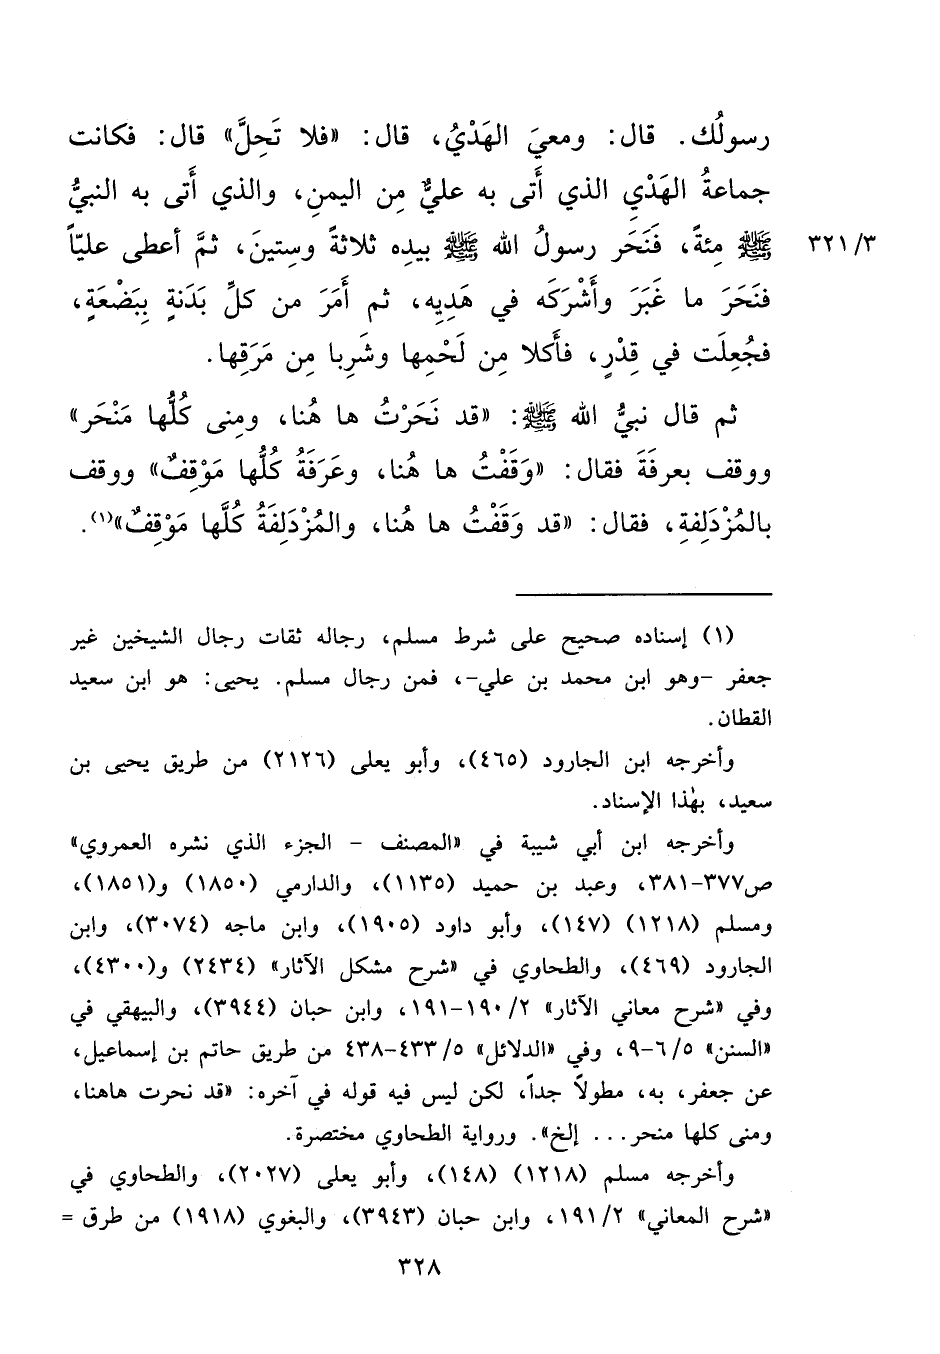 رسولُك. قال: ومعيَ الهَدْيُ، قال: «فلا تَحِلَّ» قال: فكانت
جماعةُ الهَدْيِ الذي أَتى به عليٌّ مِن اليمنِ، والذي أَتى به النبيُّ
ﷺ مِئةً، فَنَحَر رسولُ الله ﷺ بيدِه ثلاثةً وسِتينَ، ثمَّ أعطى عليّاً ٣٢١/٣
فنَحَرَ ما غَبَرَ وأَشْرَكَه في هَدِيِه، ثم أَمَرَ من كلِّ بَدَنةٍ بِبَضْعَةٍ،
فجُعِلَت في قِدْرٍ، فأَكلا مِن لَحْمِها وشَرِبا مِن مَرَقِها.
ثم قال نبيُّ الله ﷺ: «قد نَحَرْتُ ها هُنا، ومِنى كُلُّها مَنْحَر»
ووقف بعرفَةَ فقال: «وَقَفْتُ ها هُنا، وعَرَفَةُ كُلُّها مَوْقِفٌ» ووقف
بالمُزْدَلِفةِ، فقال: «قد وَقَفْتُ ها هُنا، والمُزْدَلِفَةُ كُلَّها مَوْقِفٌ»(١).
(١) إسناده صحيح على شرط مسلم، رجاله ثقات رجال الشيخين غير
جعفر -وهو ابن محمد بن علي-، فمن رجال مسلم. يحيى: هو ابن سعيد
القطان.
وأخرجه ابن الجارود (٤٦٥)، وأبو يعلى (٢١٢٦) من طريق يحيى بن
سعيد، بهٰذا الإسناد.
وأخرجه ابن أبي شيبة في «المصنف - الجزء الذي نشره العمروي»
ص٣٧٧-٣٨١، وعبد بن حميد (١١٣٥)، والدارمي (١٨٥٠) و(١٨٥١)،
ومسلم (١٢١٨) (١٤٧)، وأبو داود (١٩٠٥)، وابن ماجه (٣٠٧٤)، وابن
الجارود (٤٦٩)، والطحاوي في «شرح مشكل الآثار» (٢٤٣٤) و(٤٣٠٠)،
وفي «شرح معاني الآثار» ١٩٠/٢-١٩١، وابن حبان (٣٩٤٤)، والبيهقي في
«السنن» ٦/٥-٩، وفي «الدلائل» ٤٣٣/٥-٤٣٨ من طريق حاتم بن إسماعيل،
عن جعفر، به، مطولاً جداً، لكن ليس فيه قوله في آخره: «قد نحرت هاهنا،
ومنى كلها منحر... إلخ». ورواية الطحاوي مختصرة.
وأخرجه مسلم (١٢١٨) (١٤٨)، وأبو يعلى (٢٠٢٧)، والطحاوي في
«شرح المعاني» ١٩١/٢، وابن حبان (٣٩٤٣)، والبغوي (١٩١٨) من طرق =
٣٢٨